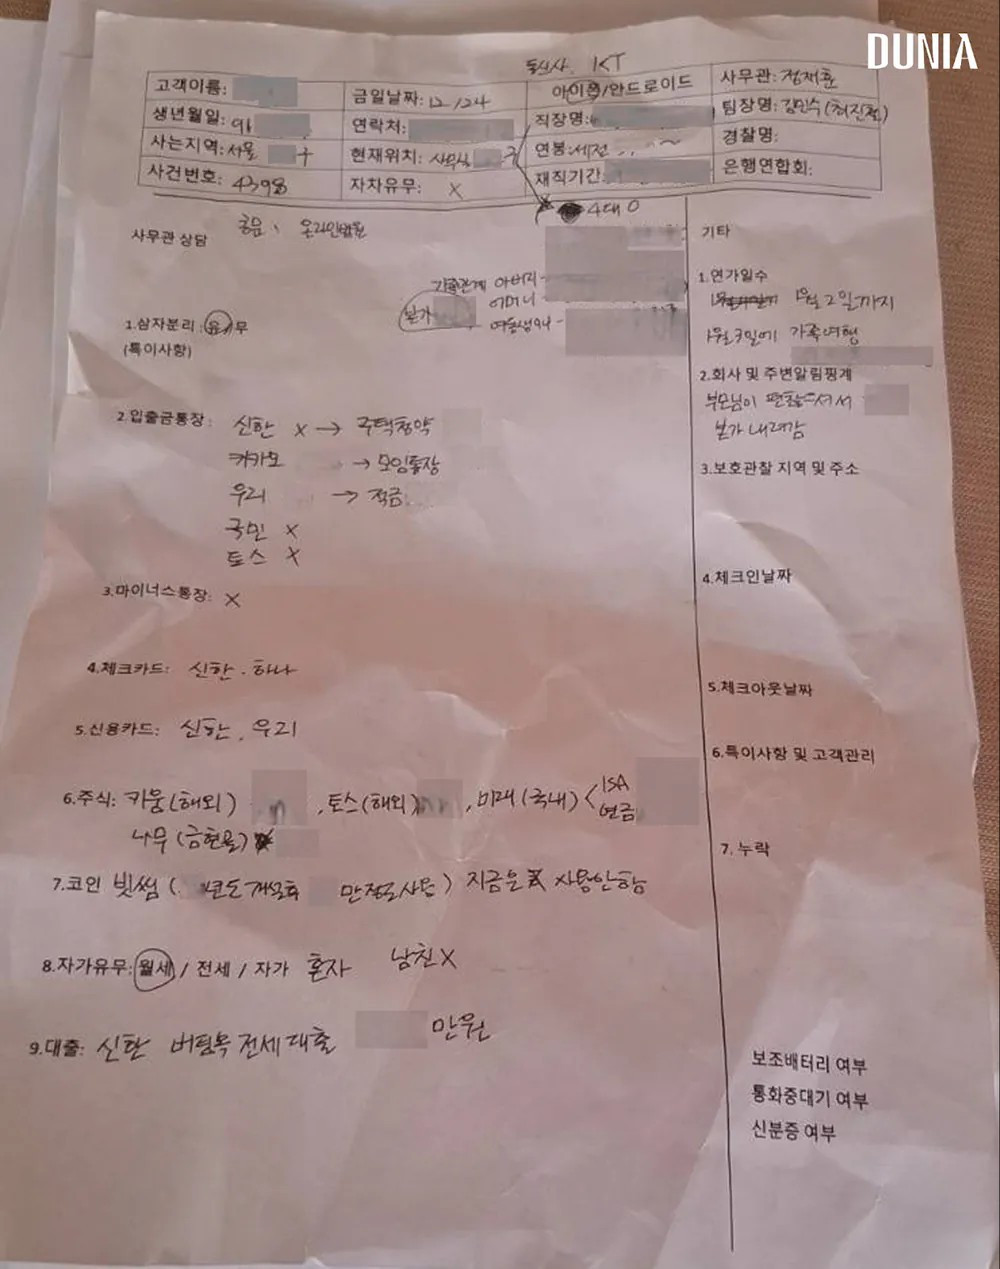 DUNIA
통신사. KT
고객이름:
금일날짜: 12/24
아이폰/안드로이드
사무관: 정재훈
생년월일: 91
연락처:
직장명:
팀장명: 김민수(최진철)
사는지역: 서울 구
현재위치: 사무실 구
연봉: 세전 ~
경찰명:
사건번호: 4398
자차유무: X
재직기간:
은행연합회:
4대 O
사무관 상담
온라인법원
가족관계 아버지-
본가
어머니-
여동생
1.삼자분리: 유/무
(특이사항)
2.입출금통장: 신한 X → 주택청약
카카오 → 모임통장
우리 → 적금
국민 X
토스 X
3.마이너스통장: X
4.체크카드: 신한. 하나
5.신용카드: 신한, 우리
6.주식: 키움(해외) , 토스(해외) , 미래(국내) < ISA
연금
나무(금현물)
7.코인 빗썸 ( 년도 개설후 만정도 사용) 지금은 사용안함
8.자가유무: 월세 / 전세 / 자가 혼자 남친X
9.대출: 신한 버팀목 전세대출 만원
기타
1.연가일수
1월2일까지
1월3일에 가족여행
2.회사 및 주변알림핑계
부모님이 편찮으셔서
본가 내려감
3.보호관찰 지역 및 주소
4.체크인날짜
5.체크아웃날짜
6.특이사항 및 고객관리
7.누락
보조배터리 여부
통화중대기 여부
신분증 여부